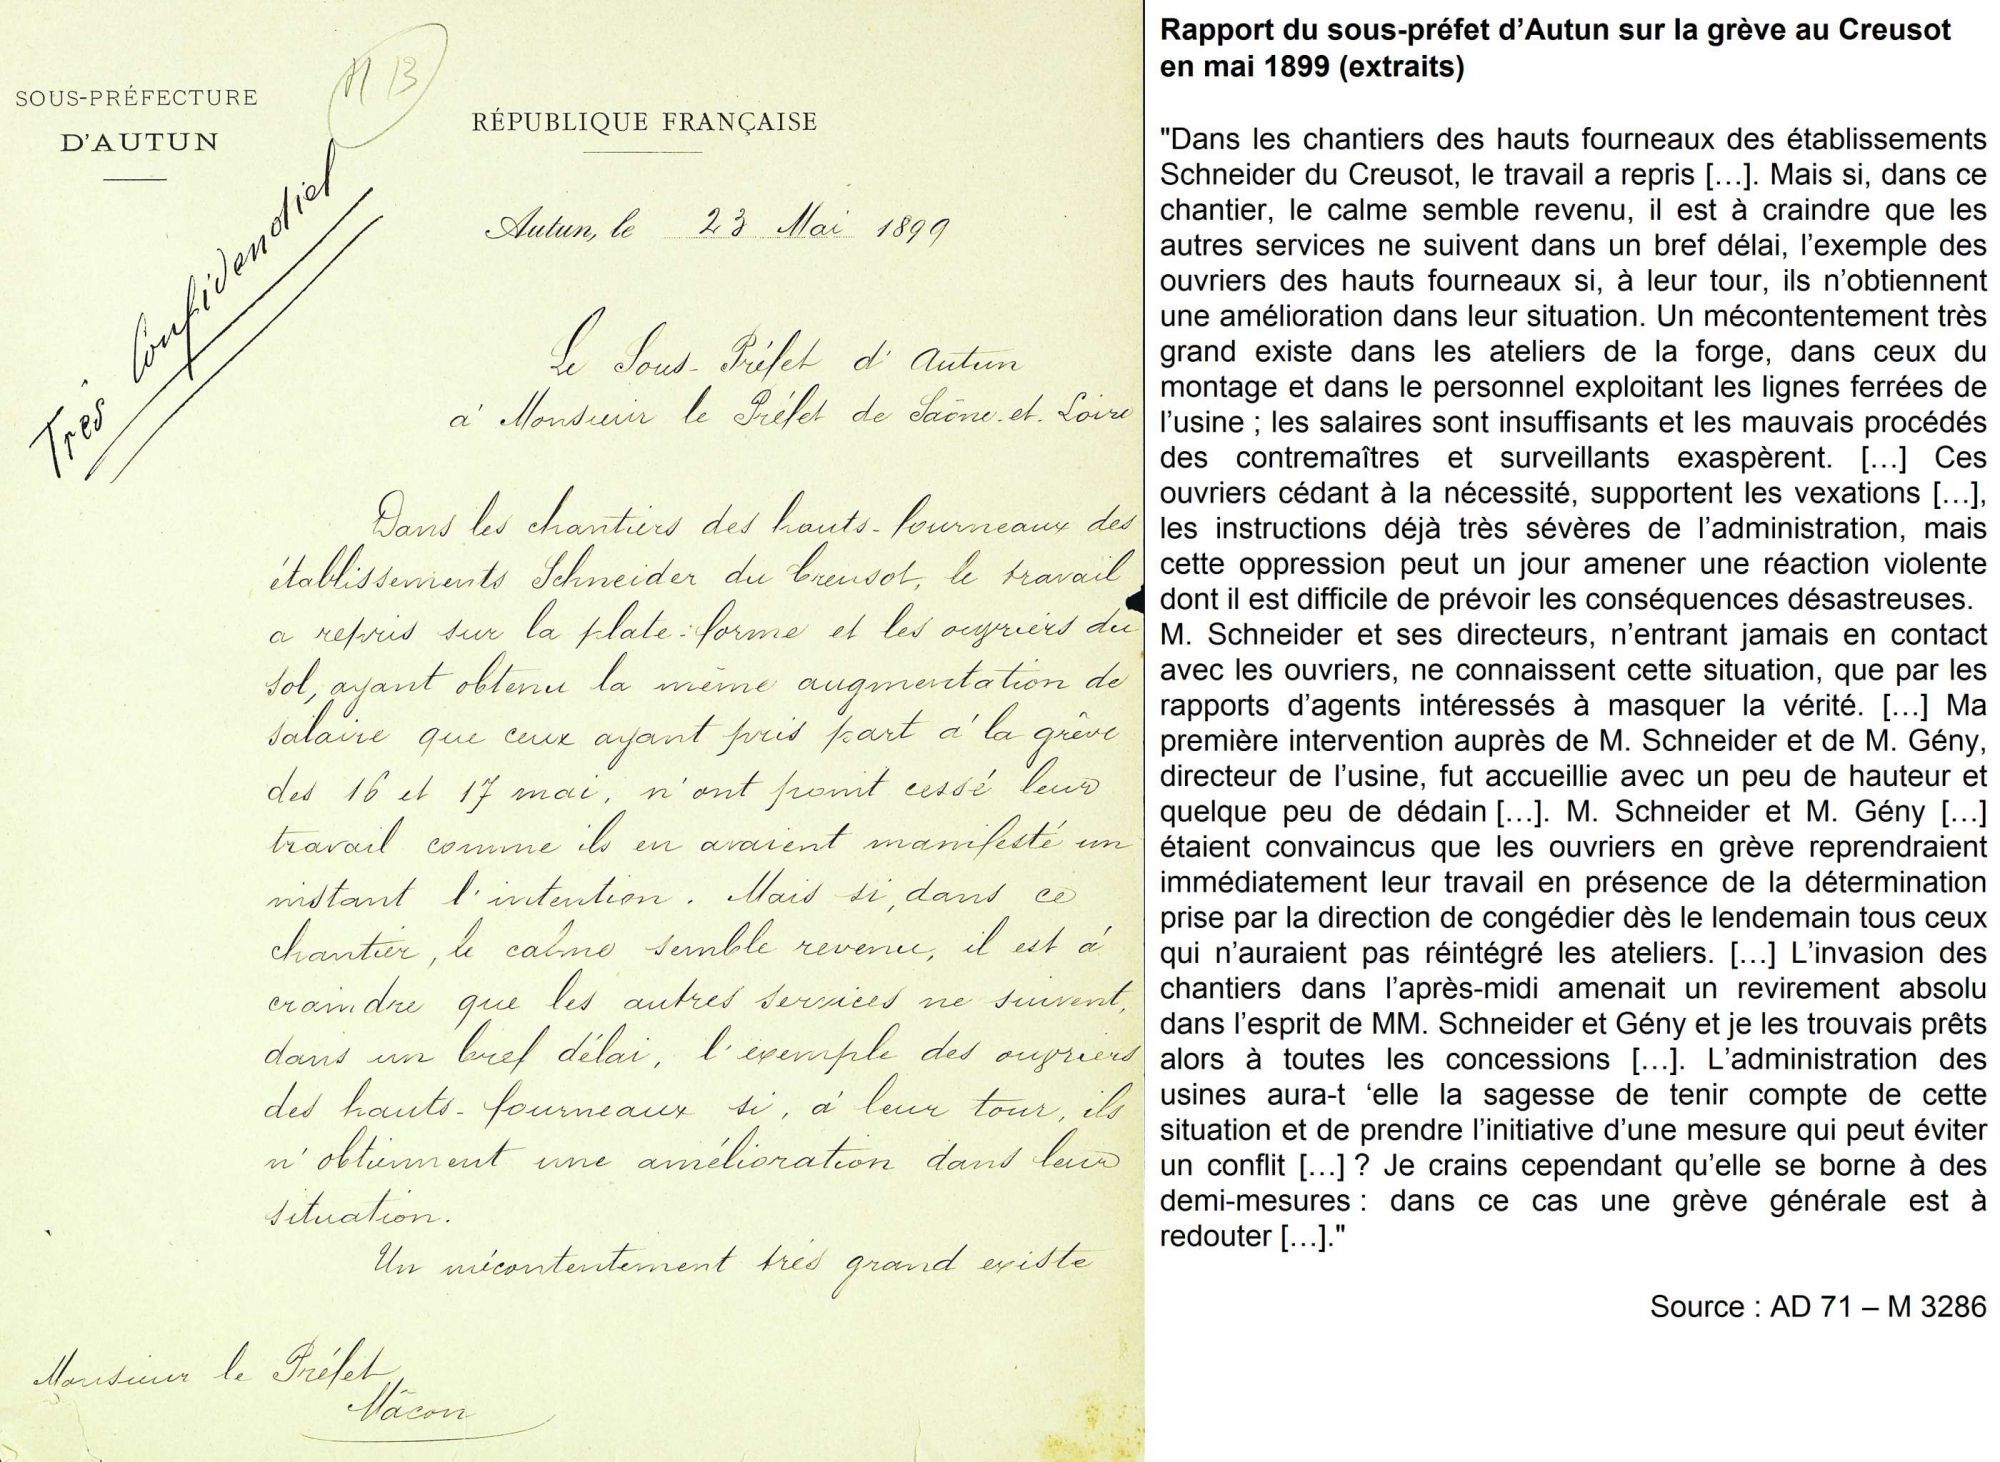 SOUS-PRÉFECTURE
D'AUTUN
RÉPUBLIQUE FRANÇAISE
Très Confidentiel
Autun, le 23 Mai 1899
Le Sous-Préfet d'Autun
à Monsieur le Préfet de Saône-et-Loire
Dans les chantiers des hauts-fourneaux des
établissements Schneider du Creusot, le travail
a repris sur la plate-forme et les ouvriers du
sol, ayant obtenu la même augmentation de
salaire que ceux ayant pris part à la grève
des 16 et 17 mai, n'ont point cessé leur
travail comme ils en avaient manifesté un
instant l'intention. Mais si, dans ce
chantier, le calme semble revenu, il est à
craindre que les autres services ne suivent,
dans un bref délai, l'exemple des ouvriers
des hauts-fourneaux si, à leur tour, ils
n'obtiennent une amélioration dans leur
situation.
Un mécontentement très grand existe
Monsieur le Préfet
Mâcon
Rapport du sous-préfet d'Autun sur la grève au Creusot
en mai 1899 (extraits)
"Dans les chantiers des hauts fourneaux des établissements
Schneider du Creusot, le travail a repris […]. Mais si, dans ce
chantier, le calme semble revenu, il est à craindre que les
autres services ne suivent dans un bref délai, l'exemple des
ouvriers des hauts fourneaux si, à leur tour, ils n'obtiennent
une amélioration dans leur situation. Un mécontentement très
grand existe dans les ateliers de la forge, dans ceux du
montage et dans le personnel exploitant les lignes ferrées de
l'usine ; les salaires sont insuffisants et les mauvais procédés
des contremaîtres et surveillants exaspèrent. […] Ces
ouvriers cédant à la nécessité, supportent les vexations […],
les instructions déjà très sévères de l'administration, mais
cette oppression peut un jour amener une réaction violente
dont il est difficile de prévoir les conséquences désastreuses.
M. Schneider et ses directeurs, n'entrant jamais en contact
avec les ouvriers, ne connaissent cette situation, que par les
rapports d'agents intéressés à masquer la vérité. […] Ma
première intervention auprès de M. Schneider et de M. Gény,
directeur de l'usine, fut accueillie avec un peu de hauteur et
quelque peu de dédain […]. M. Schneider et M. Gény […]
étaient convaincus que les ouvriers en grève reprendraient
immédiatement leur travail en présence de la détermination
prise par la direction de congédier dès le lendemain tous ceux
qui n'auraient pas réintégré les ateliers. […] L'invasion des
chantiers dans l'après-midi amenait un revirement absolu
dans l'esprit de MM. Schneider et Gény et je les trouvais prêts
alors à toutes les concessions […]. L'administration des
usines aura-t 'elle la sagesse de tenir compte de cette
situation et de prendre l'initiative d'une mesure qui peut éviter
un conflit […] ? Je crains cependant qu'elle se borne à des
demi-mesures : dans ce cas une grève générale est à
redouter […]."
Source : AD 71 – M 3286